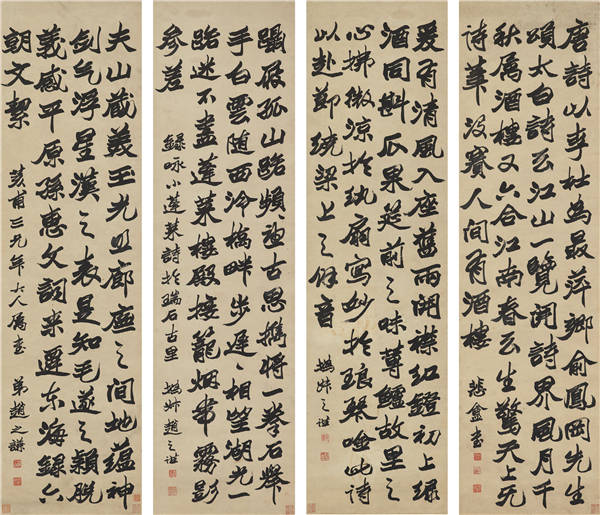 唐詩以李杜為最萍鄉俞鳳岡先生
頌太白詩云江山一覽開詩界風月千
秋屬酒樓又六合江南春云生驚天上无
詩筆沒賽人間有酒樓
悲盦書
爰有清風入座舊雨開襟紅鐙初上綠
酒同斟瓜果筵前之味蓴鱸故里之
心拂微涼於紈扇寫妙於琅琴唫此詩
以赴節繞梁上之餘音
撝叔之謙
躡屐孤山路頻迴古思攜將一拳石攀
手白雲随西泠橋畔步遲〻相望湖光一
路迷不盡蓬萊樓殿接籠烟帶霧影
參差
錄咏小蓬萊詩於瑞石古里
撝叔趙之謙
夫山藏美玉光照廊廡之間地蘊神
劍气浮星漢之表是知毛遂之穎脫
義感平原孫惠文詞來遷東海錄六
朝文絜
甫三兄年大人屬書
弟趙之謙